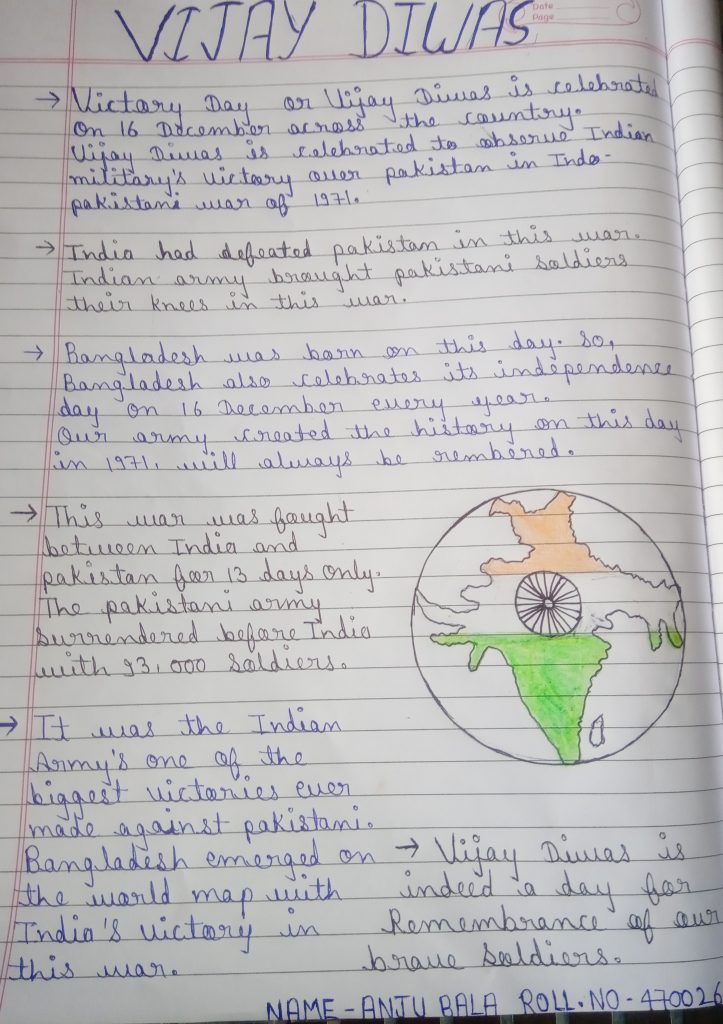 Date
Page
VIJAY DIWAS
→ Victory Day or Vijay Diwas is celebrated
on 16 December across the country.
Vijay Diwas is celebrated to observe Indian
military's victory over pakistan in Indo-
pakistani war of 1971.
→ India had defeated pakistan in this war.
Indian army brought pakistani soldiers
their knees in this war.
→ Bangladesh was born on this day. So,
Bangladesh also celebrates its independence
day on 16 December every year.
Our army created the history on this day
in 1971, will always be rembered.
→ This war was fought
between India and
pakistan for 13 days only.
The pakistani army
surrendered before India
with 93,000 soldiers.
→ It was the Indian
Army's one of the
biggest victories ever
made against pakistani.
Bangladesh emerged on
the world map with
India's victory in
this war.
→ Vijay Diwas is
indeed a day for
Remembrance of our
brave soldiers.
NAME - ANJU BALA ROLL.NO - 470026